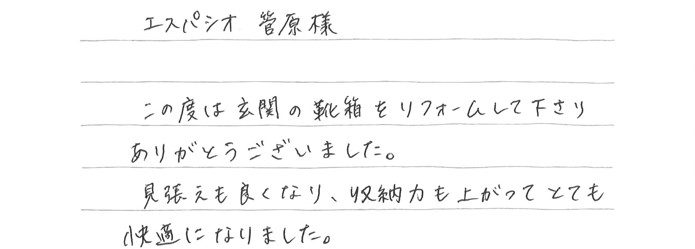 エスパシオ 菅原様
この度は玄関の靴箱をリフォームして下さり
ありがとうございました。
見張えも良くなり、収納力も上がってとても
快適になりました。